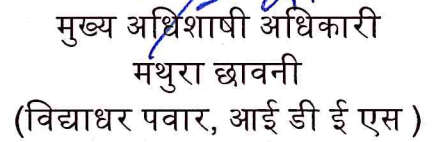 मुख्य अधिशाषी अधिकारी
मथुरा छावनी
(विद्याधर पवार, आई डी ई एस )